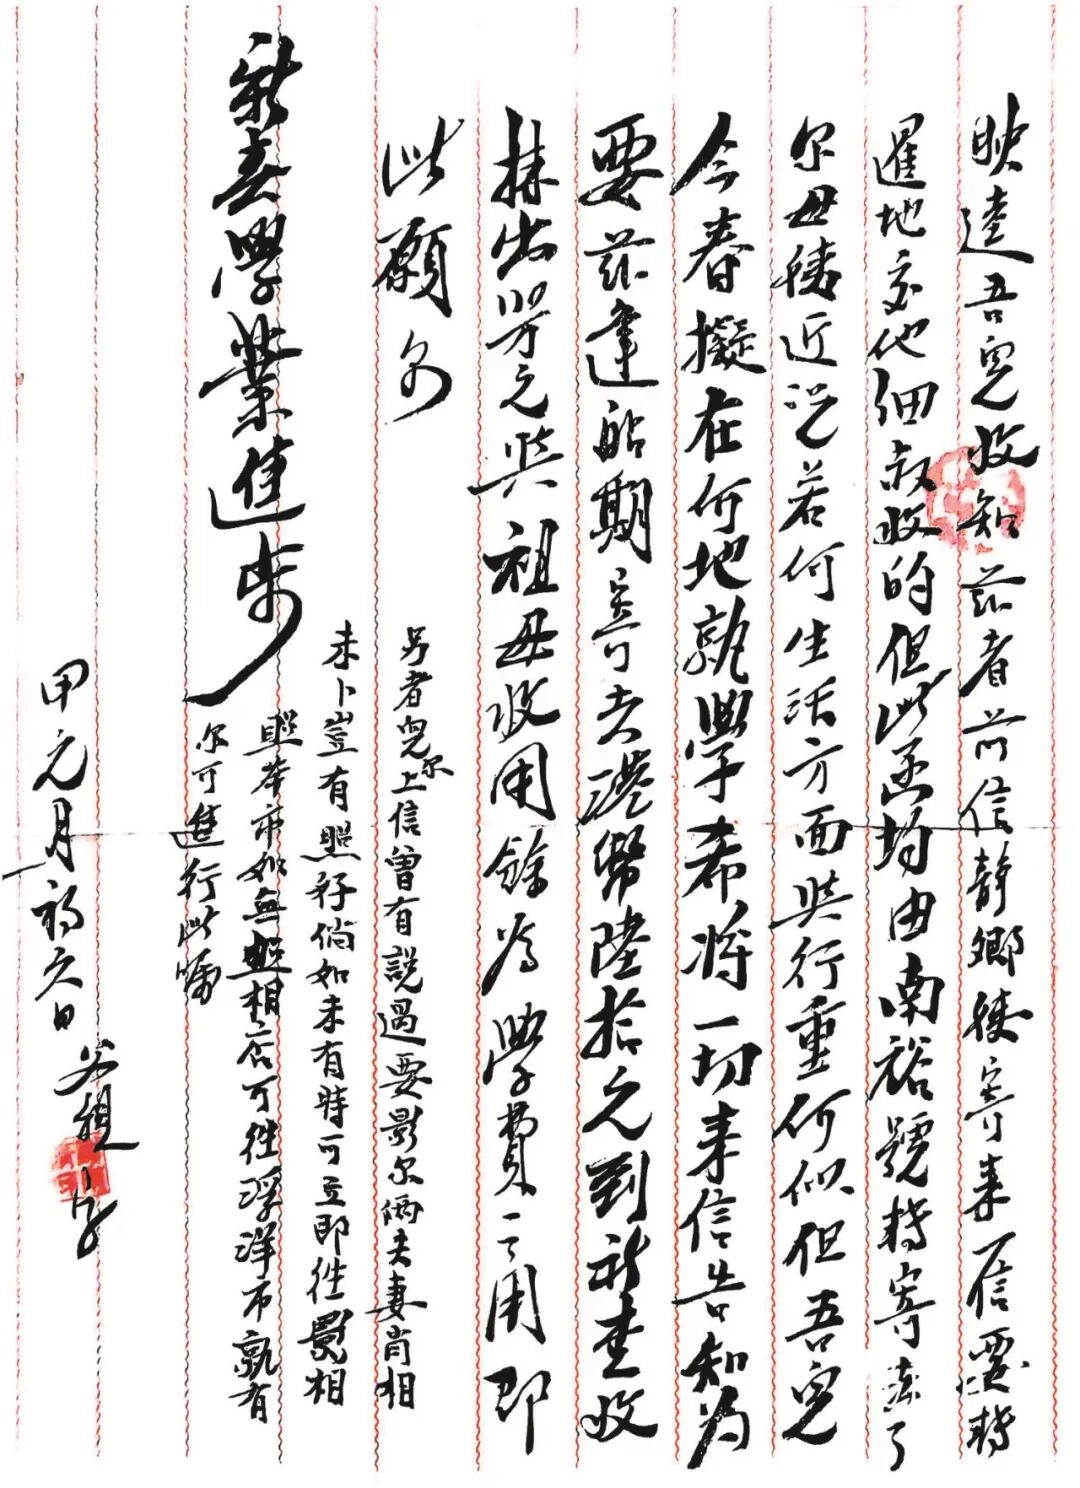 映逵吾兒收知茲者前信靜鄉後寄来一信要轉
暹地交他細叔收的但此函均由南裕號轉寄去了
尔母後近况若何生活方面與行重何似但吾兒
今春擬在何地孰學希将一切来信告知为
要茲逢船期寄去港幣陸拾元到祈查收
抹出 元與祖母收用餘为學費之用即
此願 
新春學業進步
另者兒尔上信曾有說過要影尔俩夫妻肖相
未卜豈有照好倘如未有時可立即往影相
照本市如無照相店可往浮洋市孰有
尔可進行此嘱
甲元月初六日 父 字